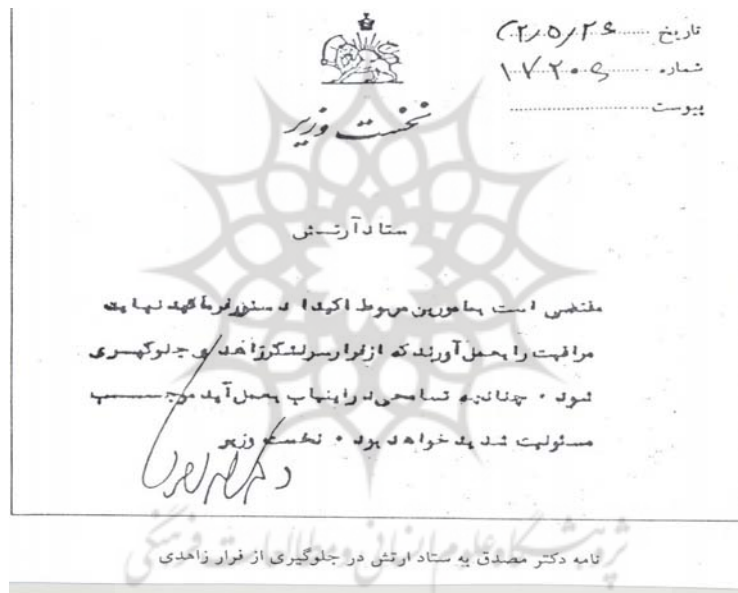 تاریخ ۳۲/۵/۲۶
شماره ۱۰۷۲۰۶
پیوست
نخست وزیر
ستاد آرتش
مقتضی است بمامورین مربوط اکیدا دستورفرمائید نهایت
مراقبت را بعمل آورند که از فرار سرلشگر زاهدی جلوگیری
شود ۰ چنانچه تسامحی در اینباب بعمل آید موجب
مسئولیت شدید خواهد بود ۰ نخست وزیر
پژوهشگاه علوم انسانی و مطالعات فرهنگی
نامه دکتر مصدق به ستاد ارتش در جلوگیری از فرار زاهدی